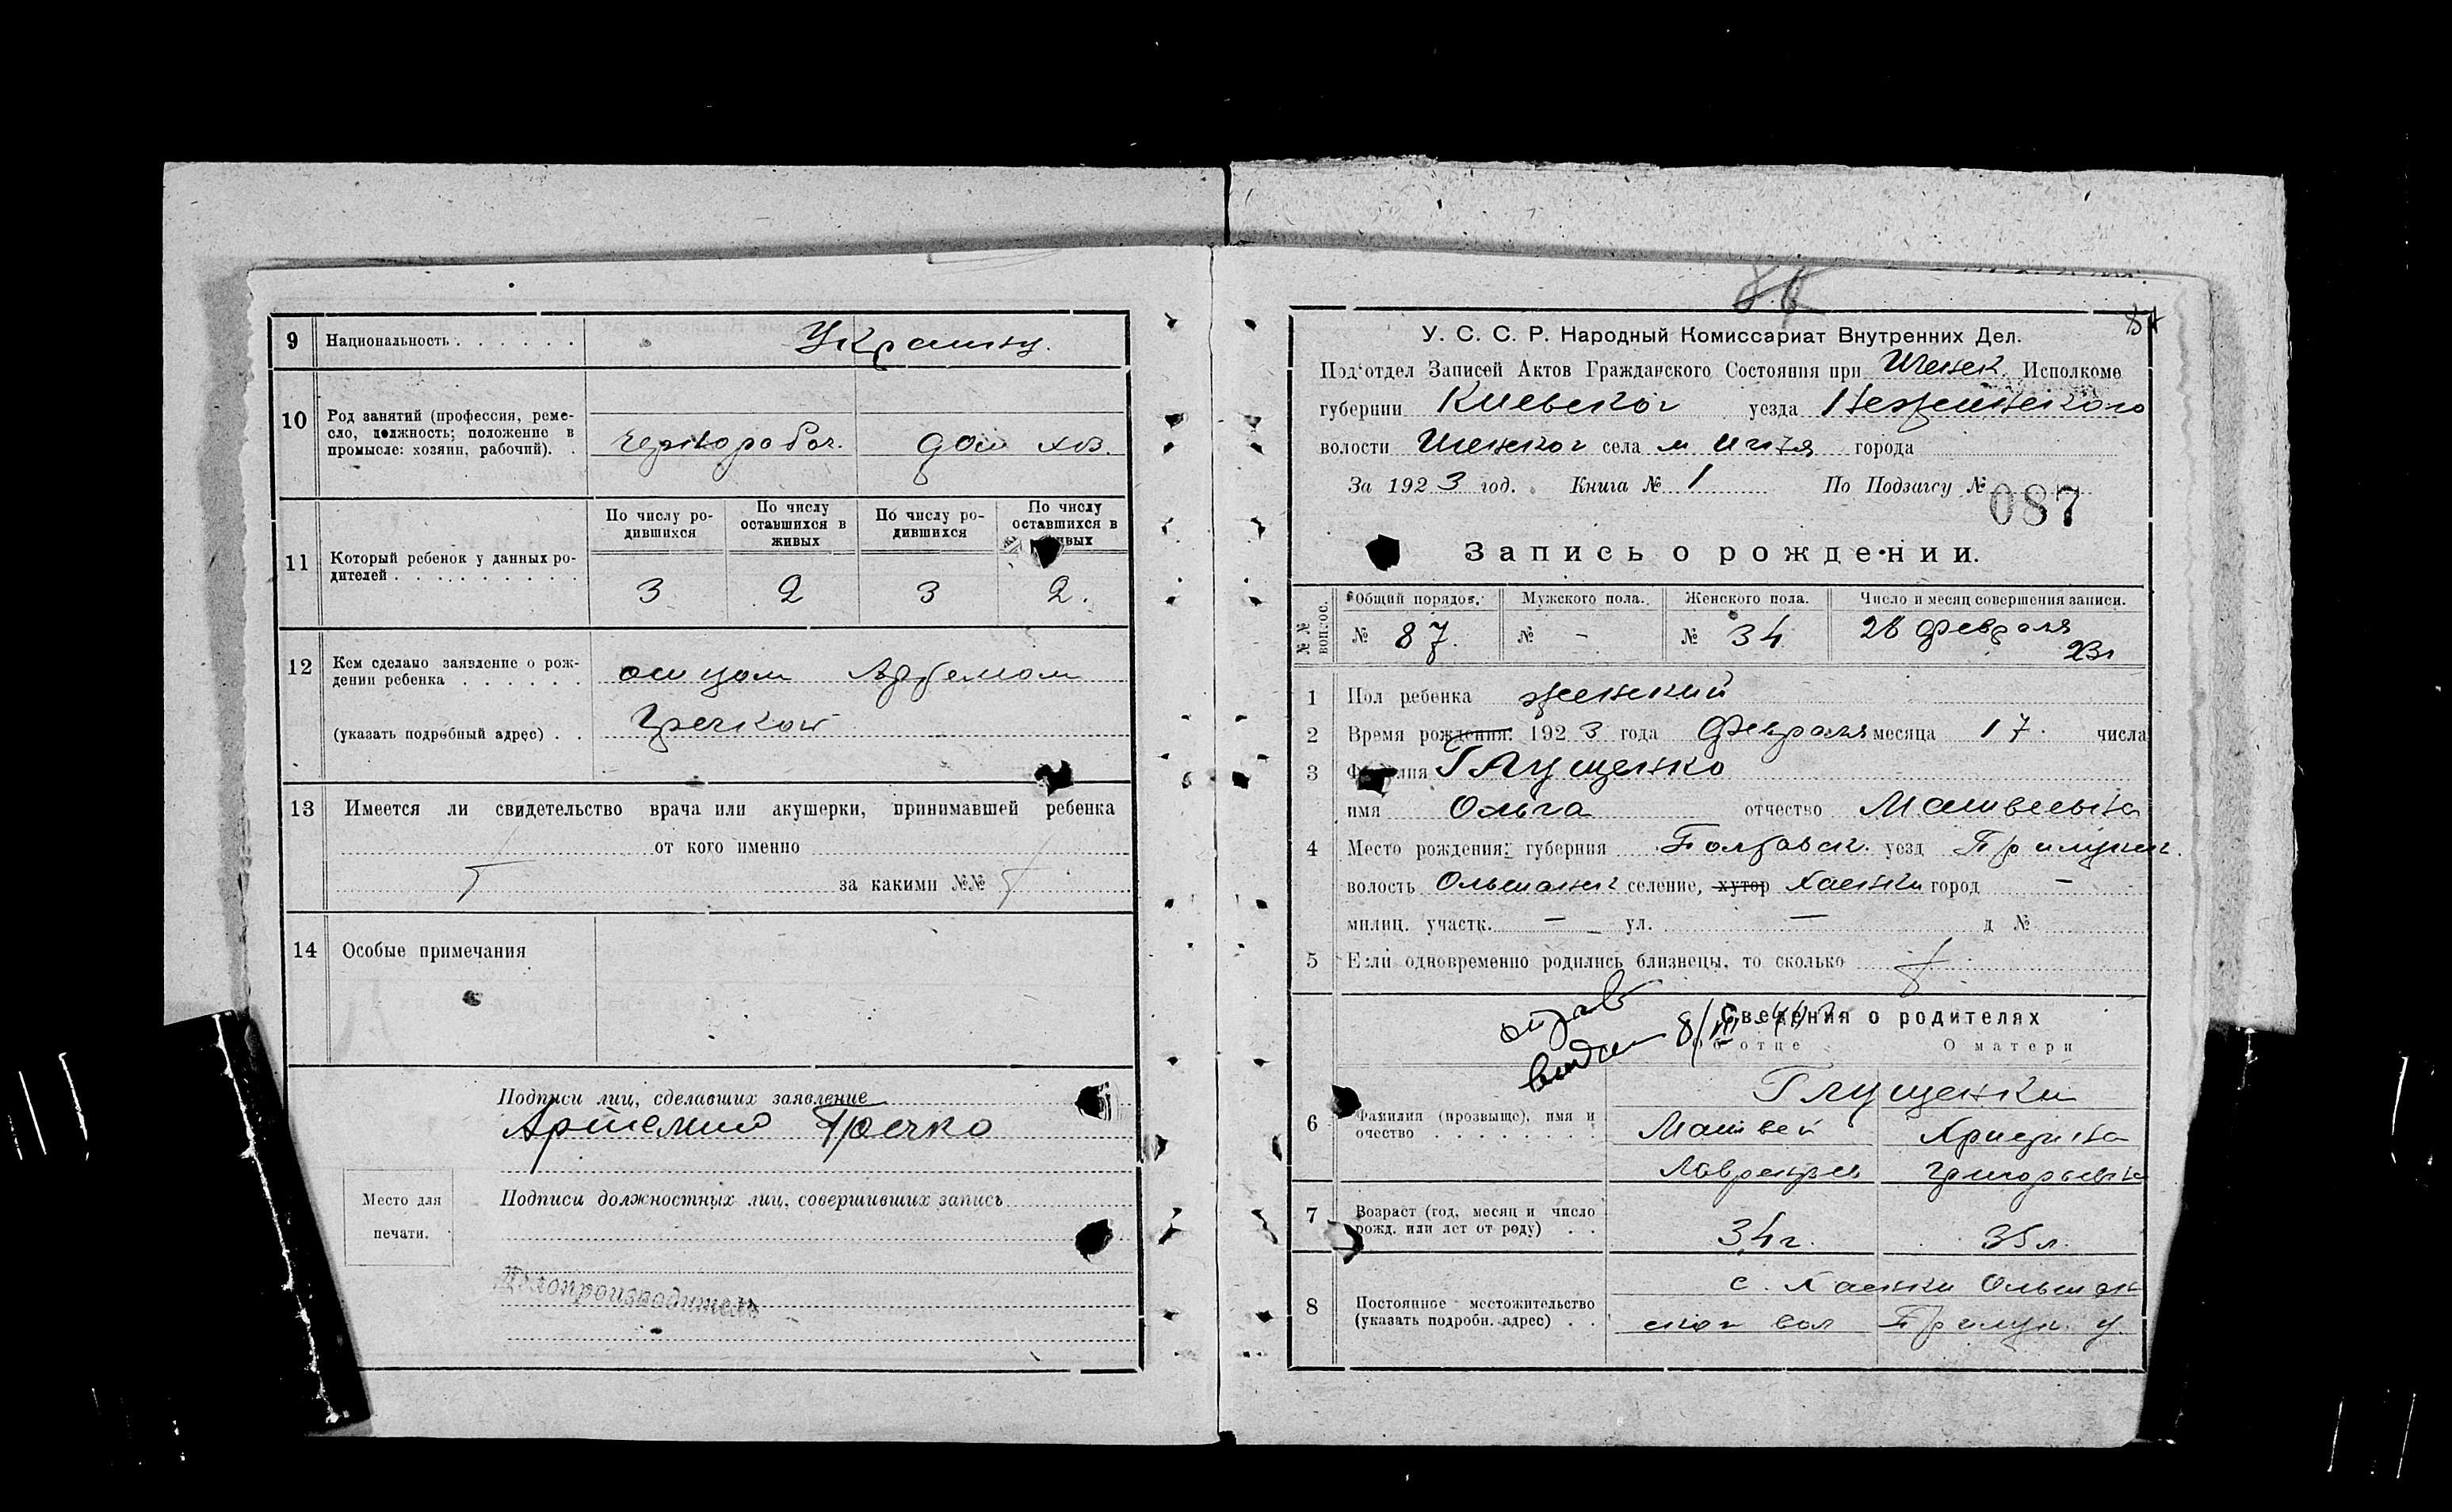 9 Национальность . . . . . . Украинц.
10 Род занятий (профессия, реме-
сло, должность; положение в
промысле: хозяин, рабочий). . чернорабоч. дом хоз.
11 Который ребенок у данных ро-
дителей . . . . . . . . . .
По числу ро-
дившихся
По числу
оставшихся в
живых
По числу ро-
дившихся
По числу
оставшихся в
живых
3 2 3 2.
12 Кем сделано заявление о рож-
дении ребенка . . . . . . отцом Артемом
(указать подробный адрес) . . Гречкой
13 Имеется ли свидетельство врача или акушерки, принимавшей ребенка
от кого именно
за какими №№
14 Особые примечания
Подписи лиц, сделавших заявление
Артемий Гречко
Место для
печати.
Подписи должностных лиц, совершивших запись
Делопроизводитель
86
87
У. С. С. Р. Народный Комиссариат Внутренних Дел.
Под'отдел Записей Актов Гражданского Состояния при Иченск. Исполкоме
губернии Киевской уезда Нежинского
волости Иченской села м Ичня города
За 1923 год. Книга № 1 По Подзагсу № 087
Запись о рождении.
№№ вопрос.
Общий порядок. Мужского пола. Женского пола. Число и месяц совершения записи.
№ 87. № - № 34 28 февраля
23г
1 Пол ребенка женский
2 Время рождения: 1923 года Февраля месяца 17. числа
3 Фамилия Глущенко
имя Ольга отчество Матвеевна
4 Место рождения: губерния Полтавск. уезд Прилуцк.
волость Ольшанск селение, хутор Хаенки город -
милиц. участк. - ул. - д №
5 Если одновременно родились близнецы, то сколько
Сведения о родителях
Об отце О матери
6 Фамилия (прозвыще), имя и
очество . . . . . . . .
Глущенки
Матвей Христина
Лаврентьев Григорьевна
7 Возраст (год, месяц и число
рожд. или лет от роду) . . 34г. 35л.
8 Постоянное местожительство
(указать подробн. адрес) . .
с. Хаенки Ольшан
ской вол Прилук. у.